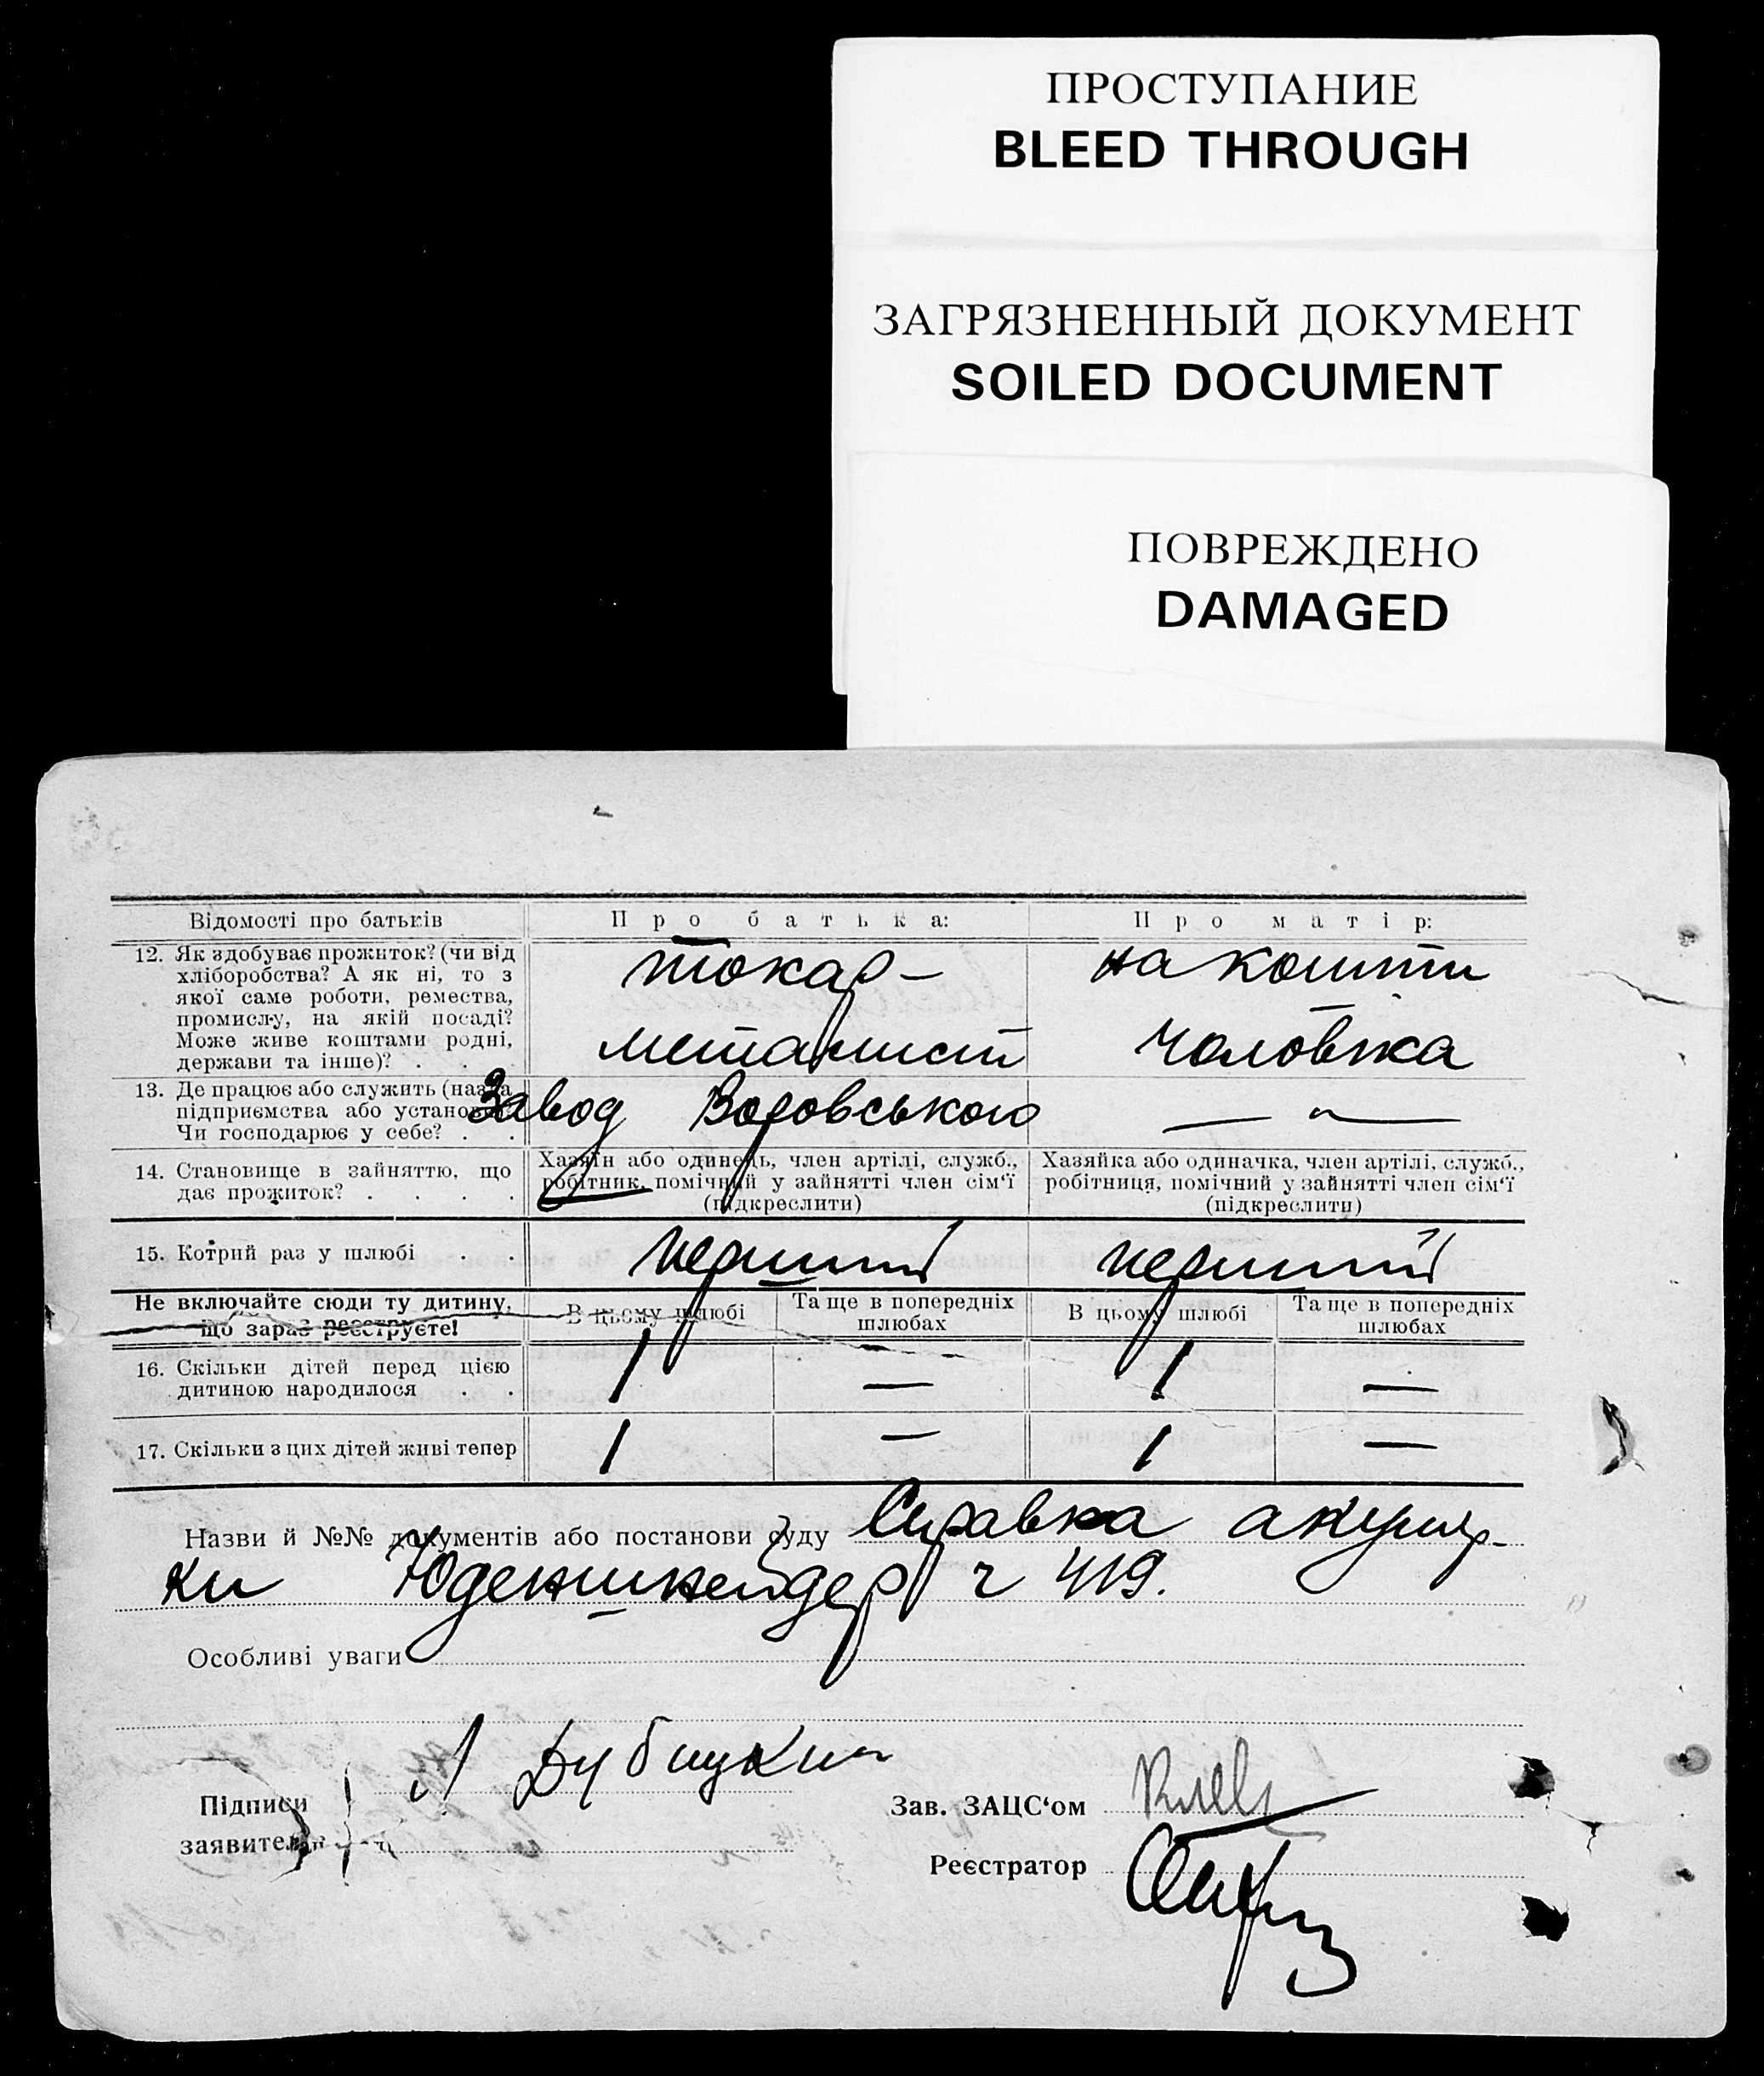 ПРОСТУПАНИЕ
BLEED THROUGH
ЗАГРЯЗНЕННЫЙ ДОКУМЕНТ
SOILED DOCUMENT
ПОВРЕЖДЕНО
DAMAGED
Відомості про батьків
Про батька:
Про матір:
12. Як здобуває прожиток? (чи від
хліборобства? А як ні, то з
якої саме роботи, ремества,
промислу, на якій посаді?
Може живе коштами родні,
держави та інше)? . .
токар-
металист
на кошти
чоловіка
13. Де працює або служить (назва
підприємства або установи)?
Чи господарює у себе? . .
Завод Воровського
— " —
14. Становище в зайняттю, що
дає прожиток? . . . .
Хазяїн або одинець, член артілі, служб.,
робітник, помічний у зайнятті член сім'ї
(підкреслити)
Хазяйка або одиначка, член артілі, служб.,
робітниця, помічний у зайнятті член сім'ї
(підкреслити)
15. Котрий раз у шлюбі . .
перший
перший
Не включайте сюди ту дитину,
що зараз реєструєте!
В цьому шлюбі
Та ще в попередніх
шлюбах
В цьому шлюбі
Та ще в попередніх
шлюбах
16. Скільки дітей перед цією
дитиною народилося . .
1
—
1
—
17. Скільки з цих дітей живі тепер
1
—
1
—
Назви й №№ документів або постанови суду Справка акушер-
ки Юденшнейдер ч 419.
Особливі уваги
Підписи
заявителів
Дубицкий
Зав. ЗАЦС'ом
Реєстратор